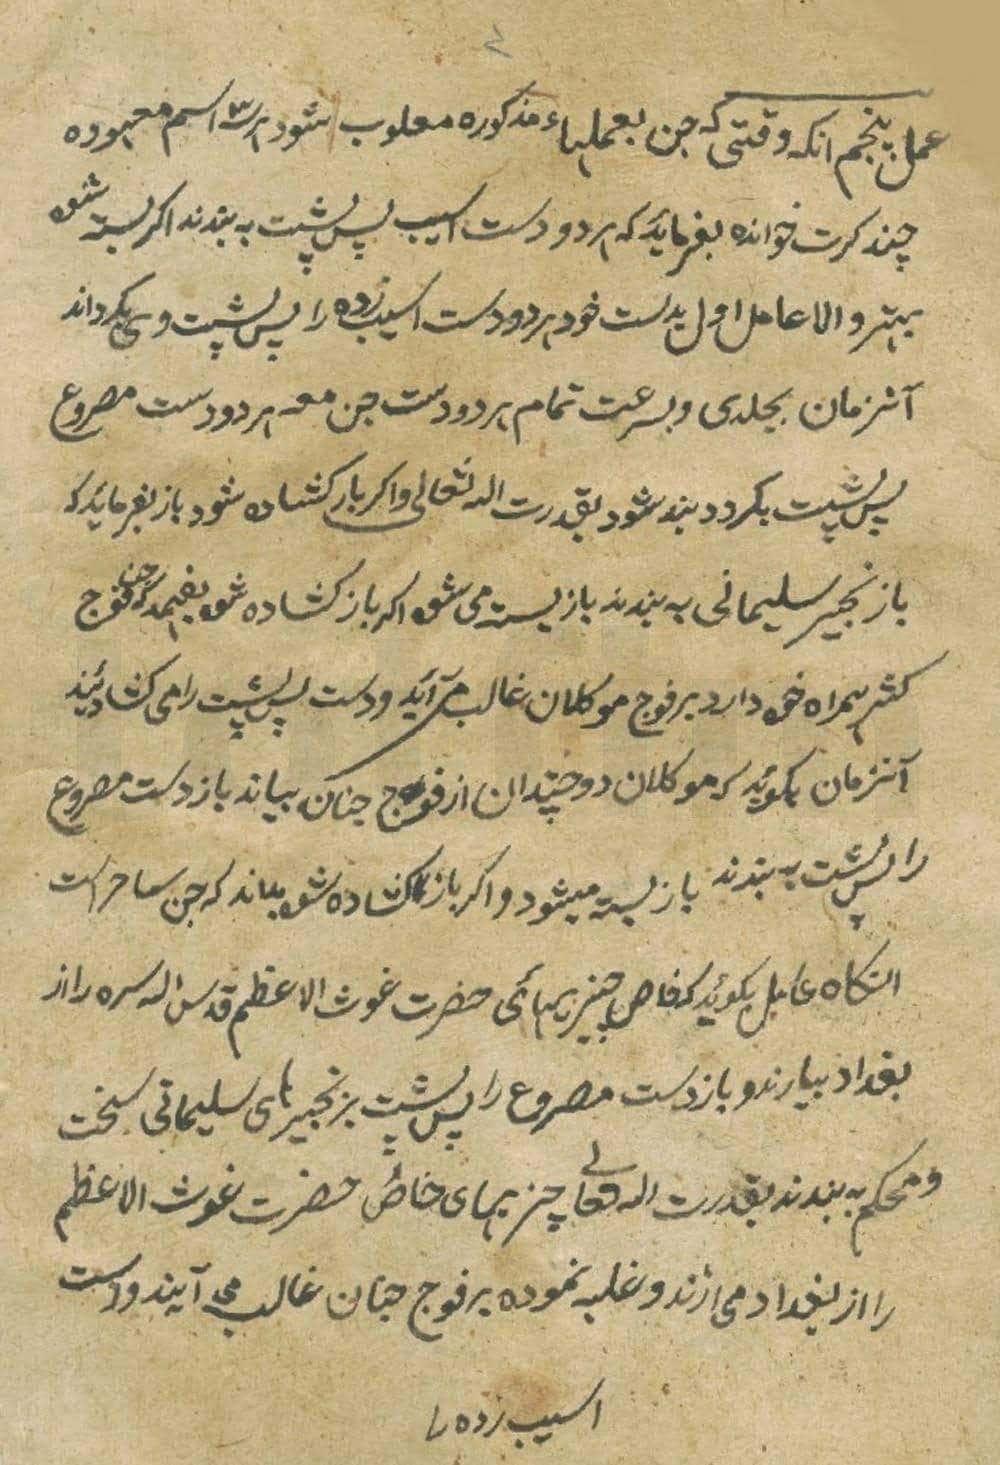 عمل پنجم انکه وقتی که جن بعملهاء مذکوره مغلوب شود هر سه اسم معهوده
چند کرت خوانده بفرماید که هر دو دست اسیب پس پشت به بندند اکر بسته شود
بهتر والا عامل اول بدست خود هر دو دست اسیب زده را پس پشت وی بکرداند
آنزمان بجلدی وبسرعت تمام هر دو دست جن معه هر دو دست مصروع
پس پشت بکردد بند شود بقدرت اله تعالی واکر بار کشاده شود باز بفرماید که
باز نجیر سلیمانی به بندند باز بسته می شود اکر باز کشاده شود بفهمد که جن فوج
کثیر همراه خود دارد بر فوج موکلان غالب می آید ودست پس پشت را می کشادیند
آنزمان بکوید که موکلان دو چندان از فوج جنان بیاند باز دست مصروع
را پس پشت به بندند باز بسته میشود واکر باز کشاده شود بداند که جن ساحر است
انکاه عامل بکوید که خاص چیز یهائی حضرت غوث الاعظم قدس اله سره را از
بغداد بیارند و باز دست مصروع را پس پشت بزنجیر های سلیمانی سخت
ومحکم به بندند بقدرت اله تعالی چیز یهای خاص حضرت غوث الاعظم
را از بغداد می ارند و غلبه نموده بر فوج جنان غالب می آیند و دست
اسیب زده را